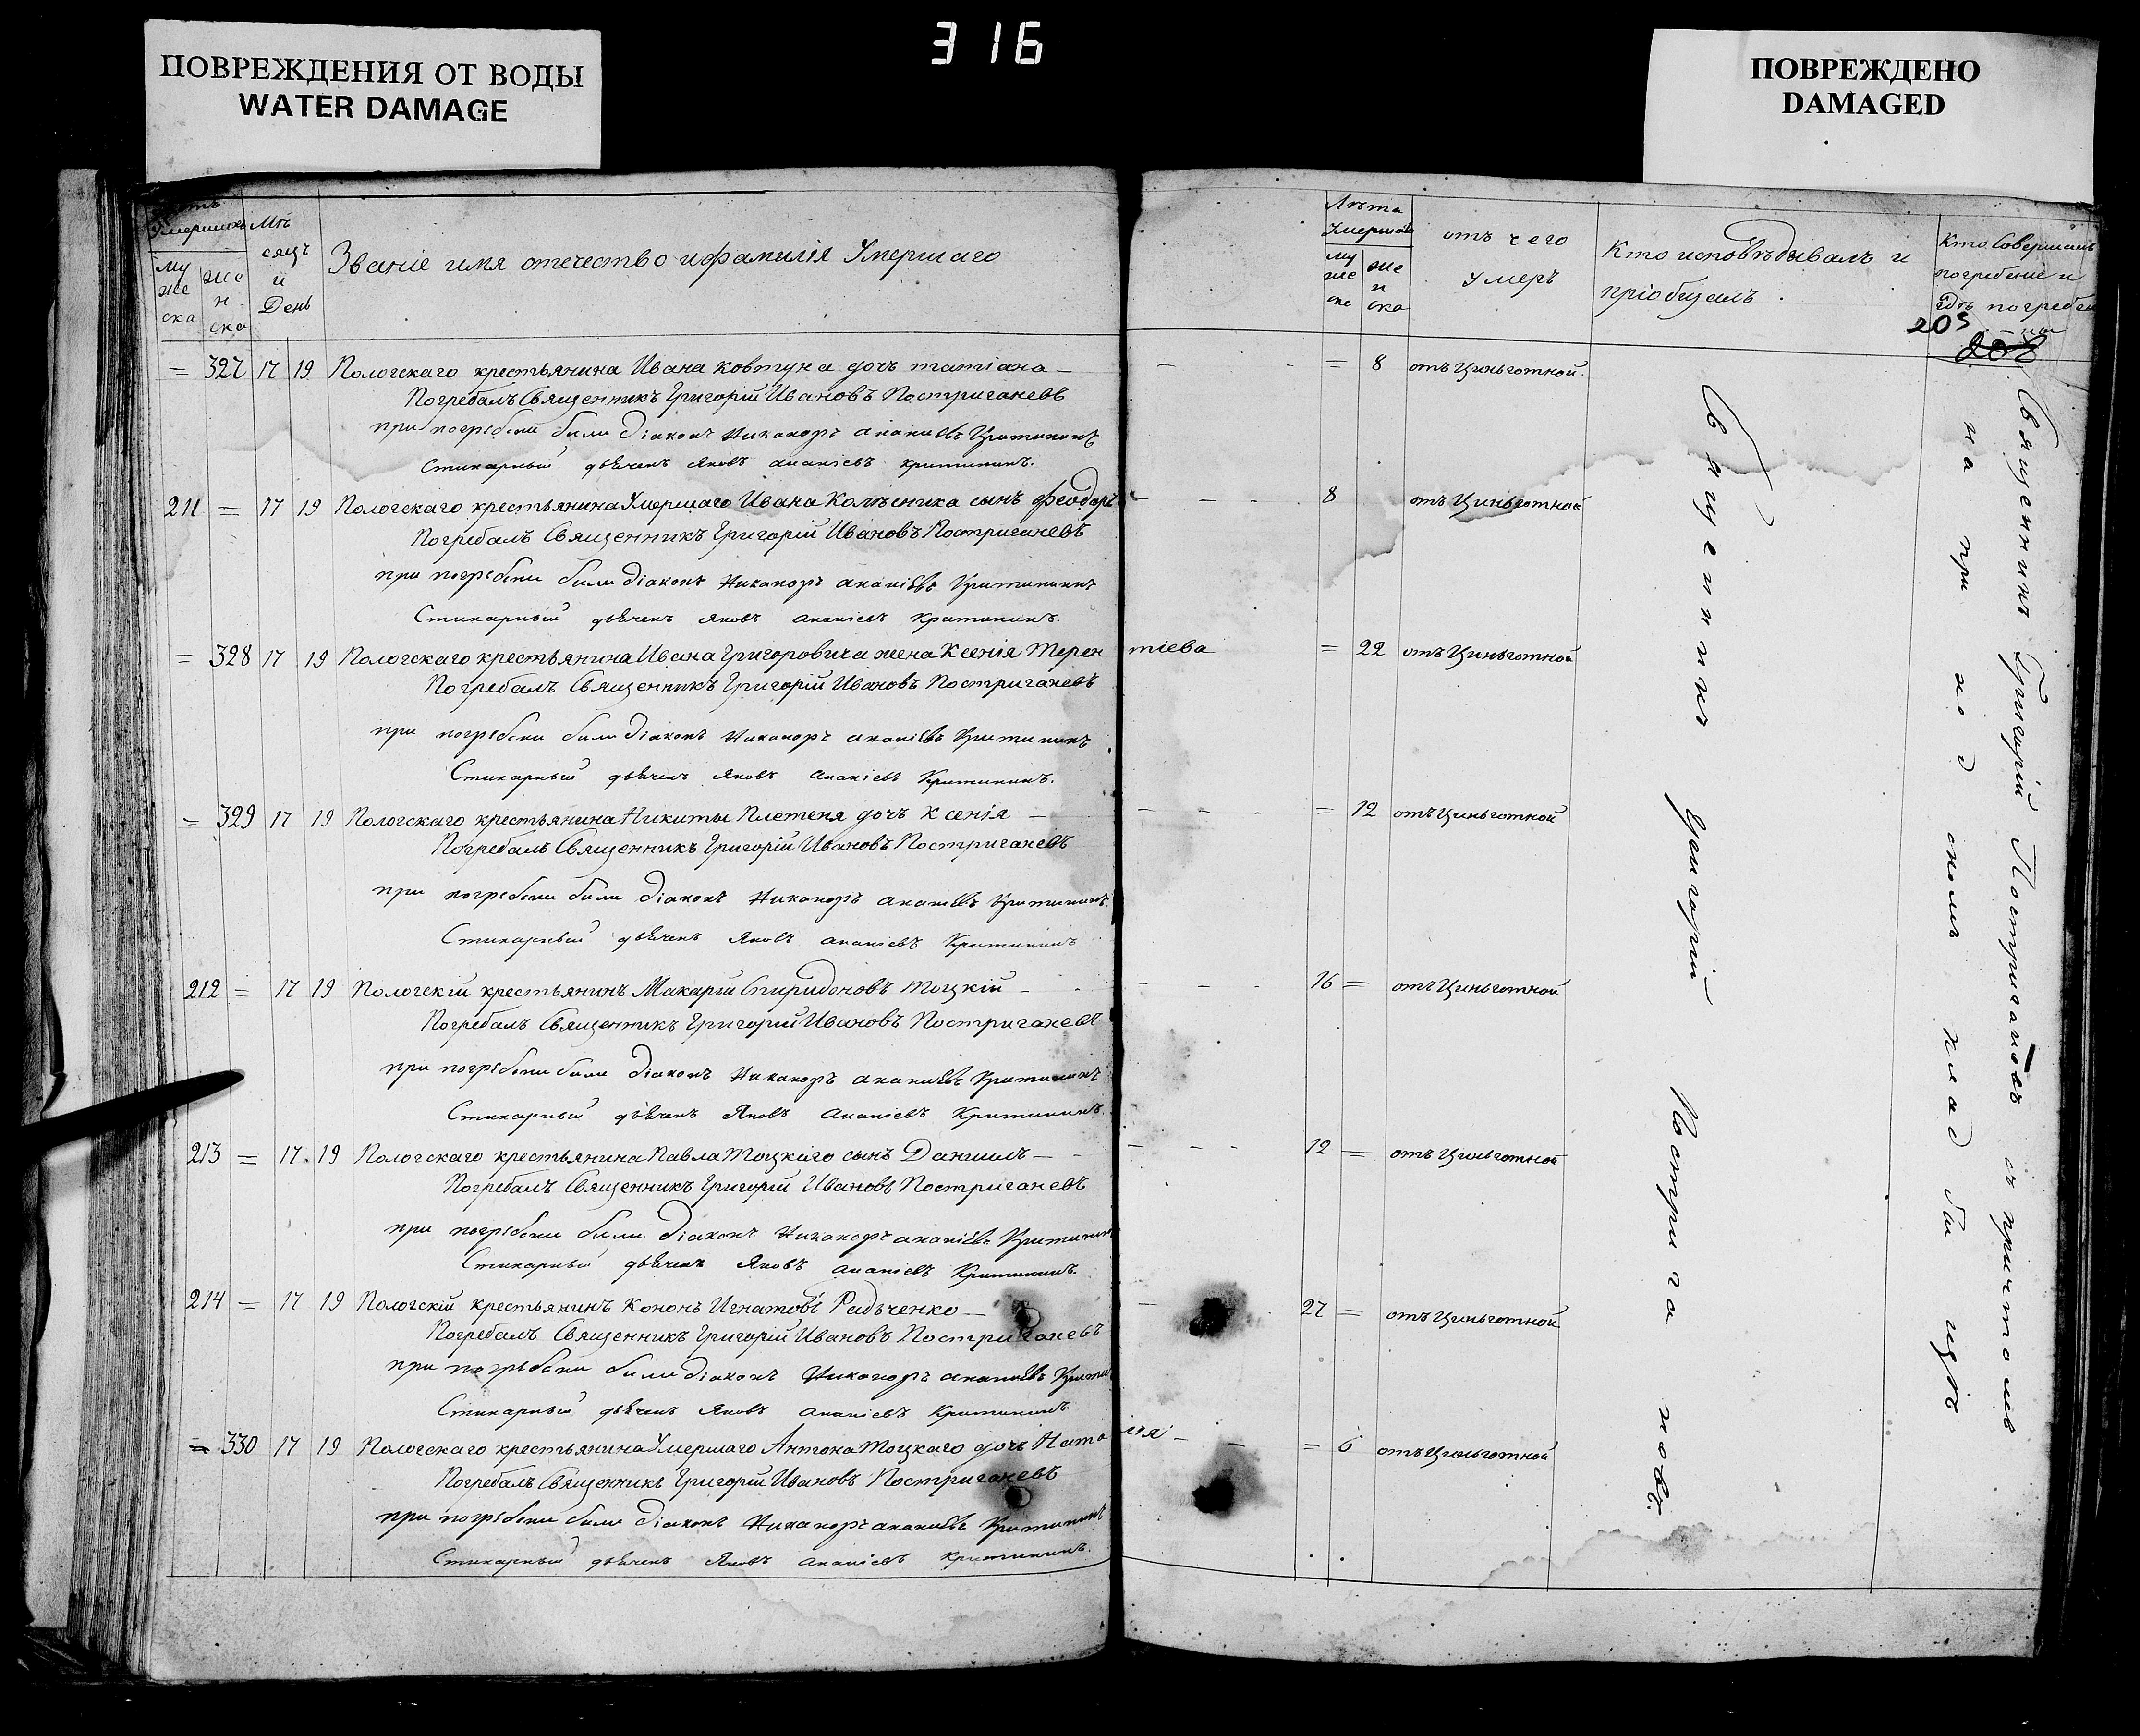 316
ПОВРЕЖДЕНИЯ ОТ ВОДЫ
WATER DAMAGE
ПОВРЕЖДЕНО
DAMAGED
Умершихъ
му же ска
же н ска
Мѣсяцъ и День
Званіе имя отечество и фамилія Умершаго
Лѣта Умершаго
му же ска
же н ска
отъ чего Умеръ
Кто исповѣдывалъ и пріобщалъ
Кто Совершалъ погребеніе и гдѣ погребены
203
= 327 17 19 Пологскаго крестьянина Ивана Ковтуна дочъ татіана — — - = 8 отъ Цинготной
Погребалъ Священникъ Григорій Ивановъ Постригачевъ
при погребени были Діаконъ Никаноръ ананіевъ Критининъ
Стихарный дьячекъ Яковъ ананіевъ критининъ.
211 = 17 19 Пологскаго крестьянина Умершаго Ивана Колѣсника сынъ Феодоръ - - - 8 отъ Цинготной
Погребалъ Священникъ Григорій Ивановъ Постригачевъ
при погребени были Діаконъ Никаноръ ананіевъ Критининъ
Стихарный дьячекъ Яковъ ананіевъ Критининъ.
= 328 17 19 Пологскаго крестьянина Ивана Григоровича жена Ксенія Терентіева = 22 отъ Цинготной
Погребалъ Священникъ Григорій Ивановъ Постригачевъ
при погребени были Діаконъ Никаноръ ананіевъ Критининъ
Стихарный дьячекъ Яковъ ананіевъ Критининъ.
= 329 17 19 Пологскаго крестьянина Никиты Плетеня дочъ Ксенія — - - - = 12 отъ Цинготной
Погребалъ Священникъ Григорій Ивановъ Постригачевъ
при погребени были Діаконъ Никаноръ ананіевъ Критининъ.
Стихарный дьячекъ Яковъ ананіевъ Критининъ
212 = 17 19 Пологскій крестьянинъ Макарій Спиридоновъ Тоцкій - - - - 16 = отъ Цинготной
Погребалъ Священникъ Григорій Ивановъ Постригачевъ
при погребени были Діаконъ Никаноръ ананіевъ Критининъ
Стихарный дьячекъ Яковъ ананіевъ Критининъ.
213 = 17 19 Пологскаго крестьянина Павла Тоцкаго сынъ Даніилъ — - - - 12 = отъ Цинготной
Погребалъ Священникъ Григорій Ивановъ Постригачевъ
при погребени были Діаконъ Никаноръ ананіевъ Критинин
Стихарный дьячекъ Яковъ ананіевъ Критининъ.
214 = 17 19 Пологскій крестьянинъ Кононъ Игнатовъ Радченко — - 27 = отъ Цинготной
Погребалъ Священникъ Григорій Ивановъ Постригачевъ
при погребени были діаконъ Никаноръ ананіевъ Критин
Стихарный дьячекъ Яковъ ананіевъ Критининъ
= 330 17 19 Пологскаго крестьянина Умершаго Антона Тоцкаго дочъ Наталія - - = 6 отъ Цинготной
Погребалъ Священникъ Григорій Ивановъ Постригачевъ
при погребени были діаконъ Никаноръ ананіевъ Критининъ
Стихарный дьячекъ Яковъ ананіевъ Критининъ.
Священникъ Григорій Постригачовъ
Священникъ Григорій Постригачовъ съ причтомъ
на приходскомъ кладбищѣ